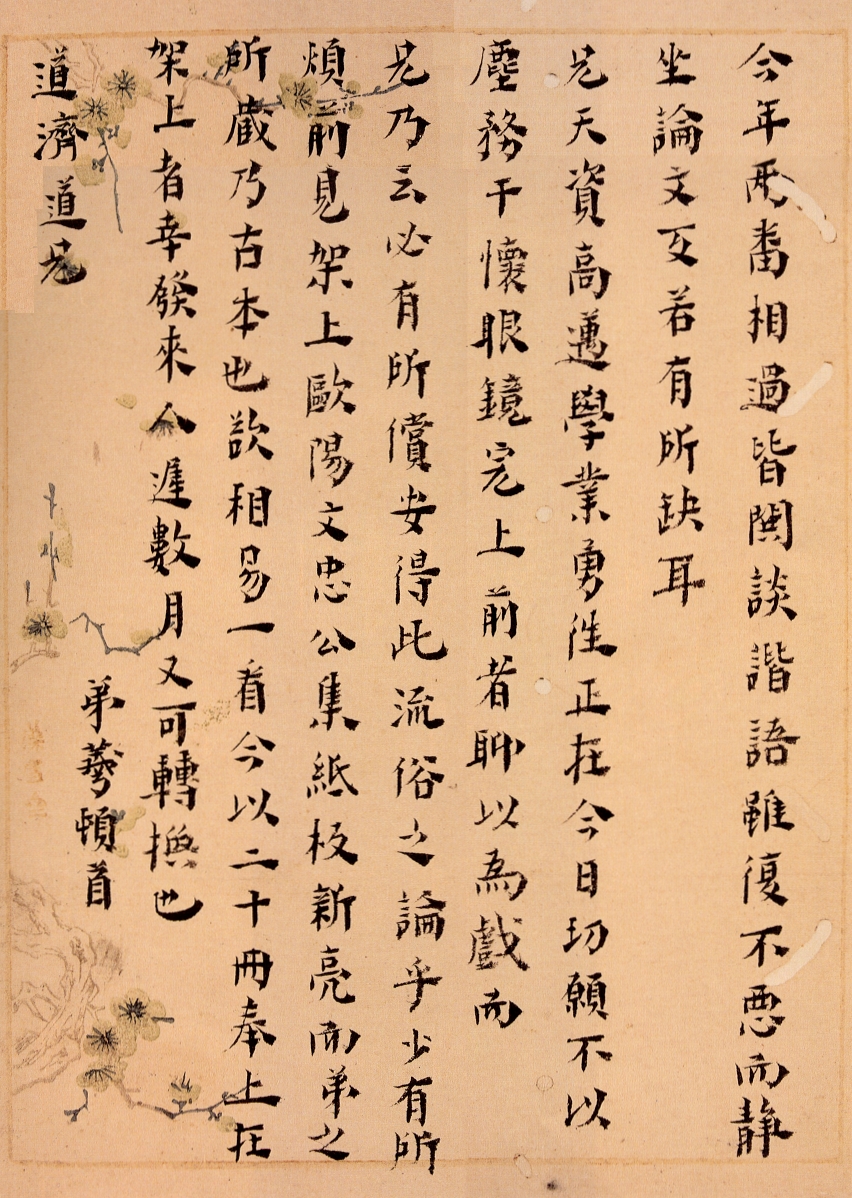 今年两畨相過皆闊談諧語雖復不惡而靜
坐論文互若有所缺耳
兄天資高邁學業勇徃正在今日切願不以
塵務干懷眼鏡完上前者聊以為戲而
兄乃云必有所償安得此流俗之論乎少有所
煩前見架上歐陽文忠公集紙板新亮而弟之
所藏乃古本也欲相易一看今以二十冊奉上在
架上者幸發來人遲數月又可轉換也
弟蕚頓首
道濟道兄